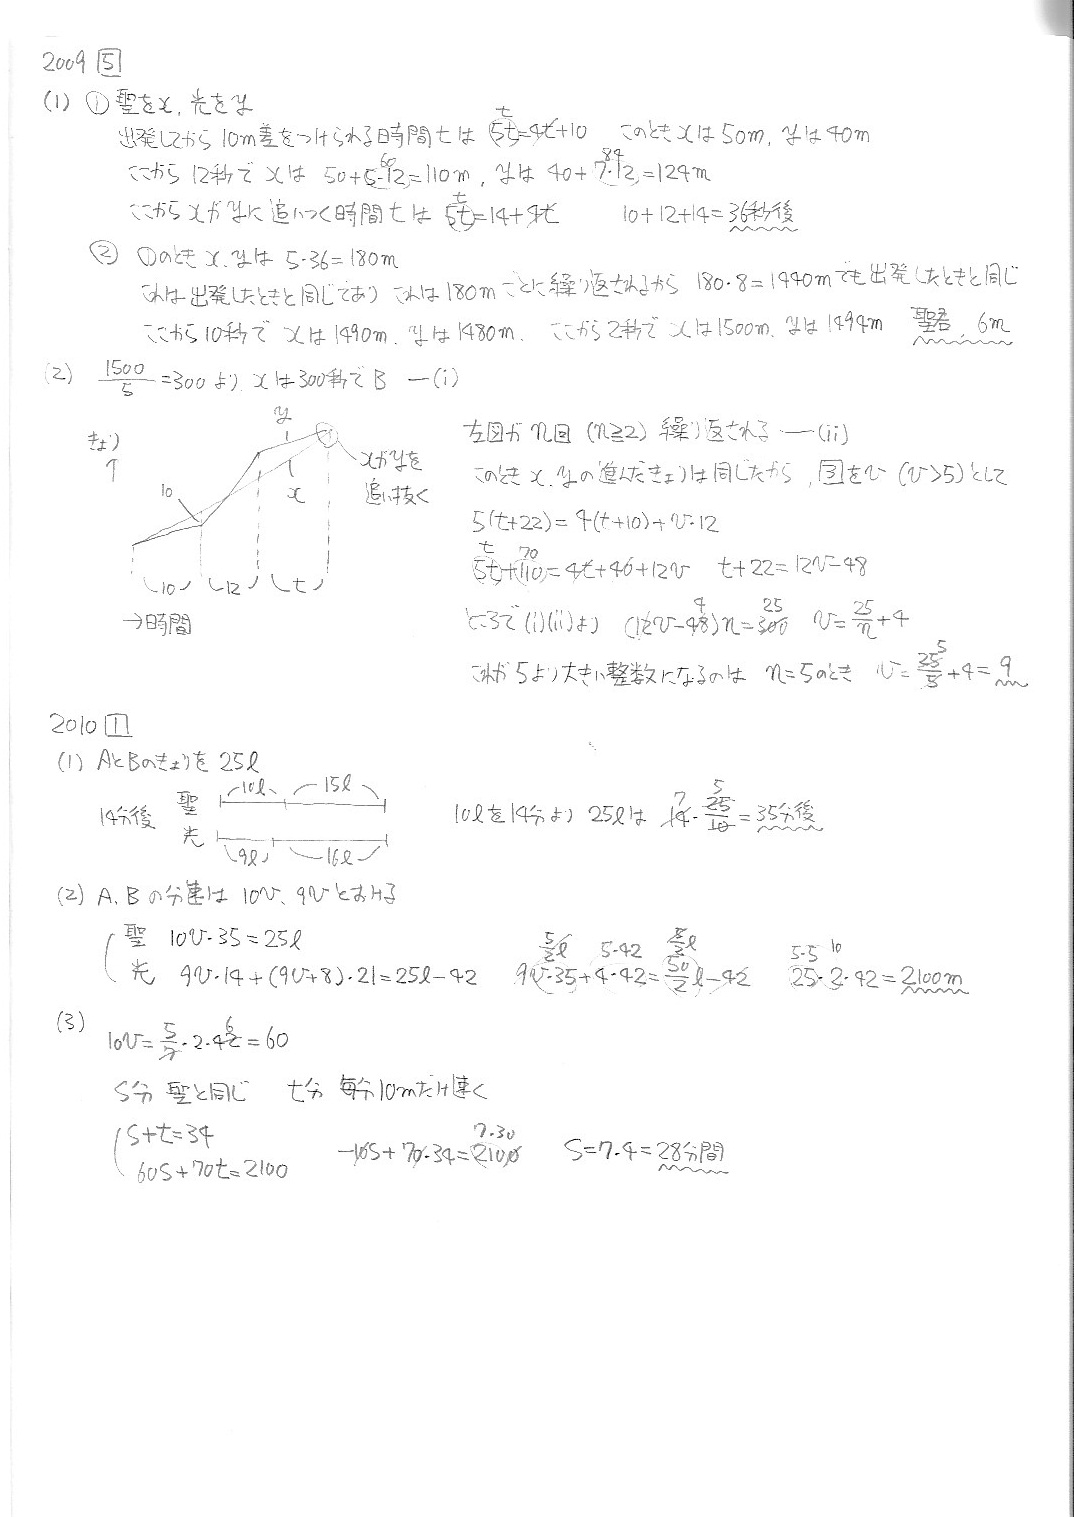 2009 5
(1) ① 聖をx, 光をy
出発してから10m差をつけられる時間tは 5t=4t+10 このときxは50m, yは40m
t
ここから12秒でxは 50+5·12=110m, yは 40+7·12=124m
60 84
ここからxがyに追いつく時間tは 5t=14+4t 10+12+14=36秒後
t
② ①のときx,yは 5·36=180m
これは出発したときと同じであり これは180mごとに繰り返されるから 180·8=1440mでも出発したときと同じ
ここから10秒で xは1490m, yは1480m, ここから2秒で xは1500m, yは1494m 聖君, 6m
(2) 1500/5=300より xは300秒でB —(i)
y
きょり
↑
10
x
xがyを
追い抜く
10 12 t
→時間
左図が n回 (n≧2) 繰り返される —(ii)
このときx,yの進んだきょりは同じだから, 3をv (v>5)として
5(t+22)=4(t+10)+v·12
t 70
5t+110=4t+40+12v t+22=12v-48
4 25
ところで(i)(ii)より (12v-48)n=300 v=25/n+4
これが5より大きい整数になるのは n=5のとき v=25/5+4=9
5
2010 1
(1) AとBのきょりを 25l
10l 15l
14分後 聖
光
9l 16l
10lを14分より 25lは 14·25/10=35分後
7 5
(2) A, Bの分速は 10v, 9vとおける
聖 10v·35=25l
光 9v·14+(9v+8)·21=25l-42
5/2l 5·42 5/2l
9v·35+4·42=50/2l-42
5·5 10
25·2·42=2100m
(3)
10v=5/7·2·42=60
6
s分 聖と同じ t分 毎分10mだけ速く
s+t=34
60s+70t=2100
7·30
-10s+70·34=2100 s=7·4=28分間